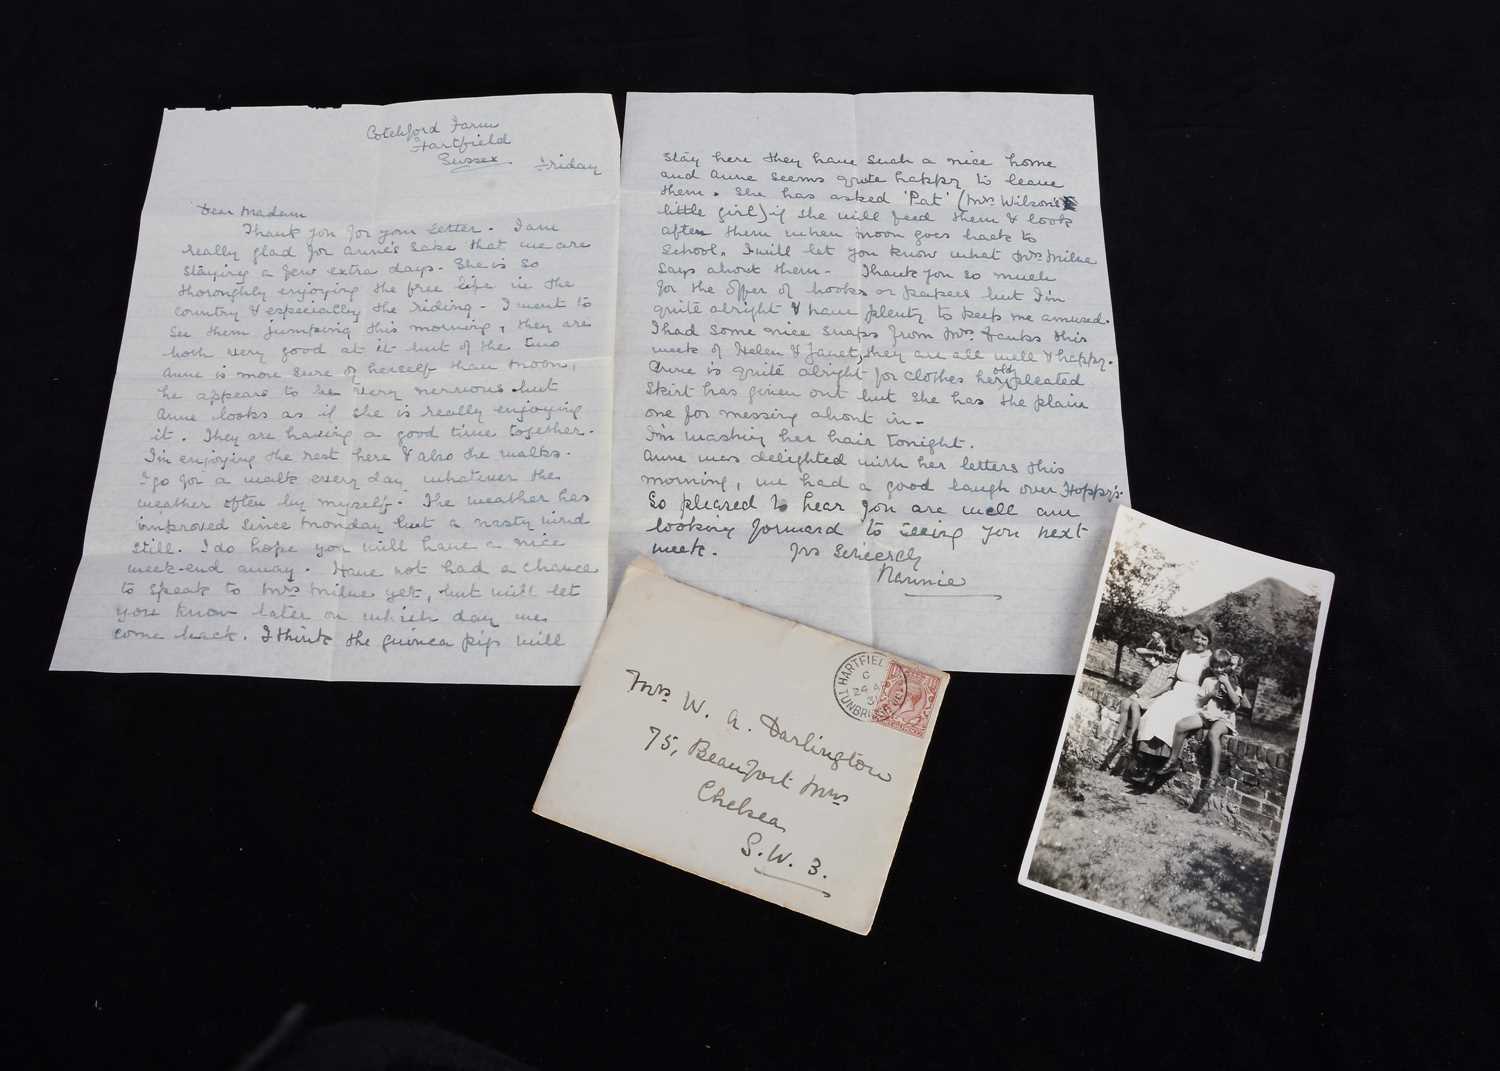 Cotchford Farm
Hartfield
Sussex. Friday
Dear Madam
Thank you for your letter. I am
really glad for Anne's sake that we are
staying a few extra days. She is so
thoroughly enjoying the free life in the
country & especially the riding. I went to
see them jumping this morning, they are
both very good at it but of the two
Anne is more sure of herself than Moon,
he appears to be very nervous but
Anne looks as if she is really enjoying
it. They are having a good time together.
I'm enjoying the rest here & also the walks.
I go for a walk every day whatever the
weather often by myself. The weather has
improved since Monday but a nasty wind
still. I do hope you will have a nice
week-end away. Have not had a chance
to speak to Mrs Milne yet, but will let
you know later on which day we
come back. I think the guinea pigs will
stay here they have such a nice home
and Anne seems quite happy to leave
them. She has asked 'Pat' (Mrs Wilson's
little girl) if she will feed them & look
after them when Moon goes back to
School. I will let you know what Mrs Milne
says about them. Thank you so much
for the offer of books or papers but I'm
quite alright & have plenty to keep me amused.
I had some nice snaps from Mrs this
week of Helen & Janet, they are all well & happy.
Anne is quite alright for clothes her old pleated
skirt has given out but she has the plain
one for messing about in.
I'm washing her hair tonight.
Anne was delighted with her letters this
morning, we had a good laugh over Hoppy's
So pleased to hear you are well am
looking forward to seeing you next
week. Yrs Sincerely
Nannie
HARTFIELD
TUNBRIDGE
Mrs W. A. Darlington
75, Beaufort Mns
Chelsea
S.W. 3.